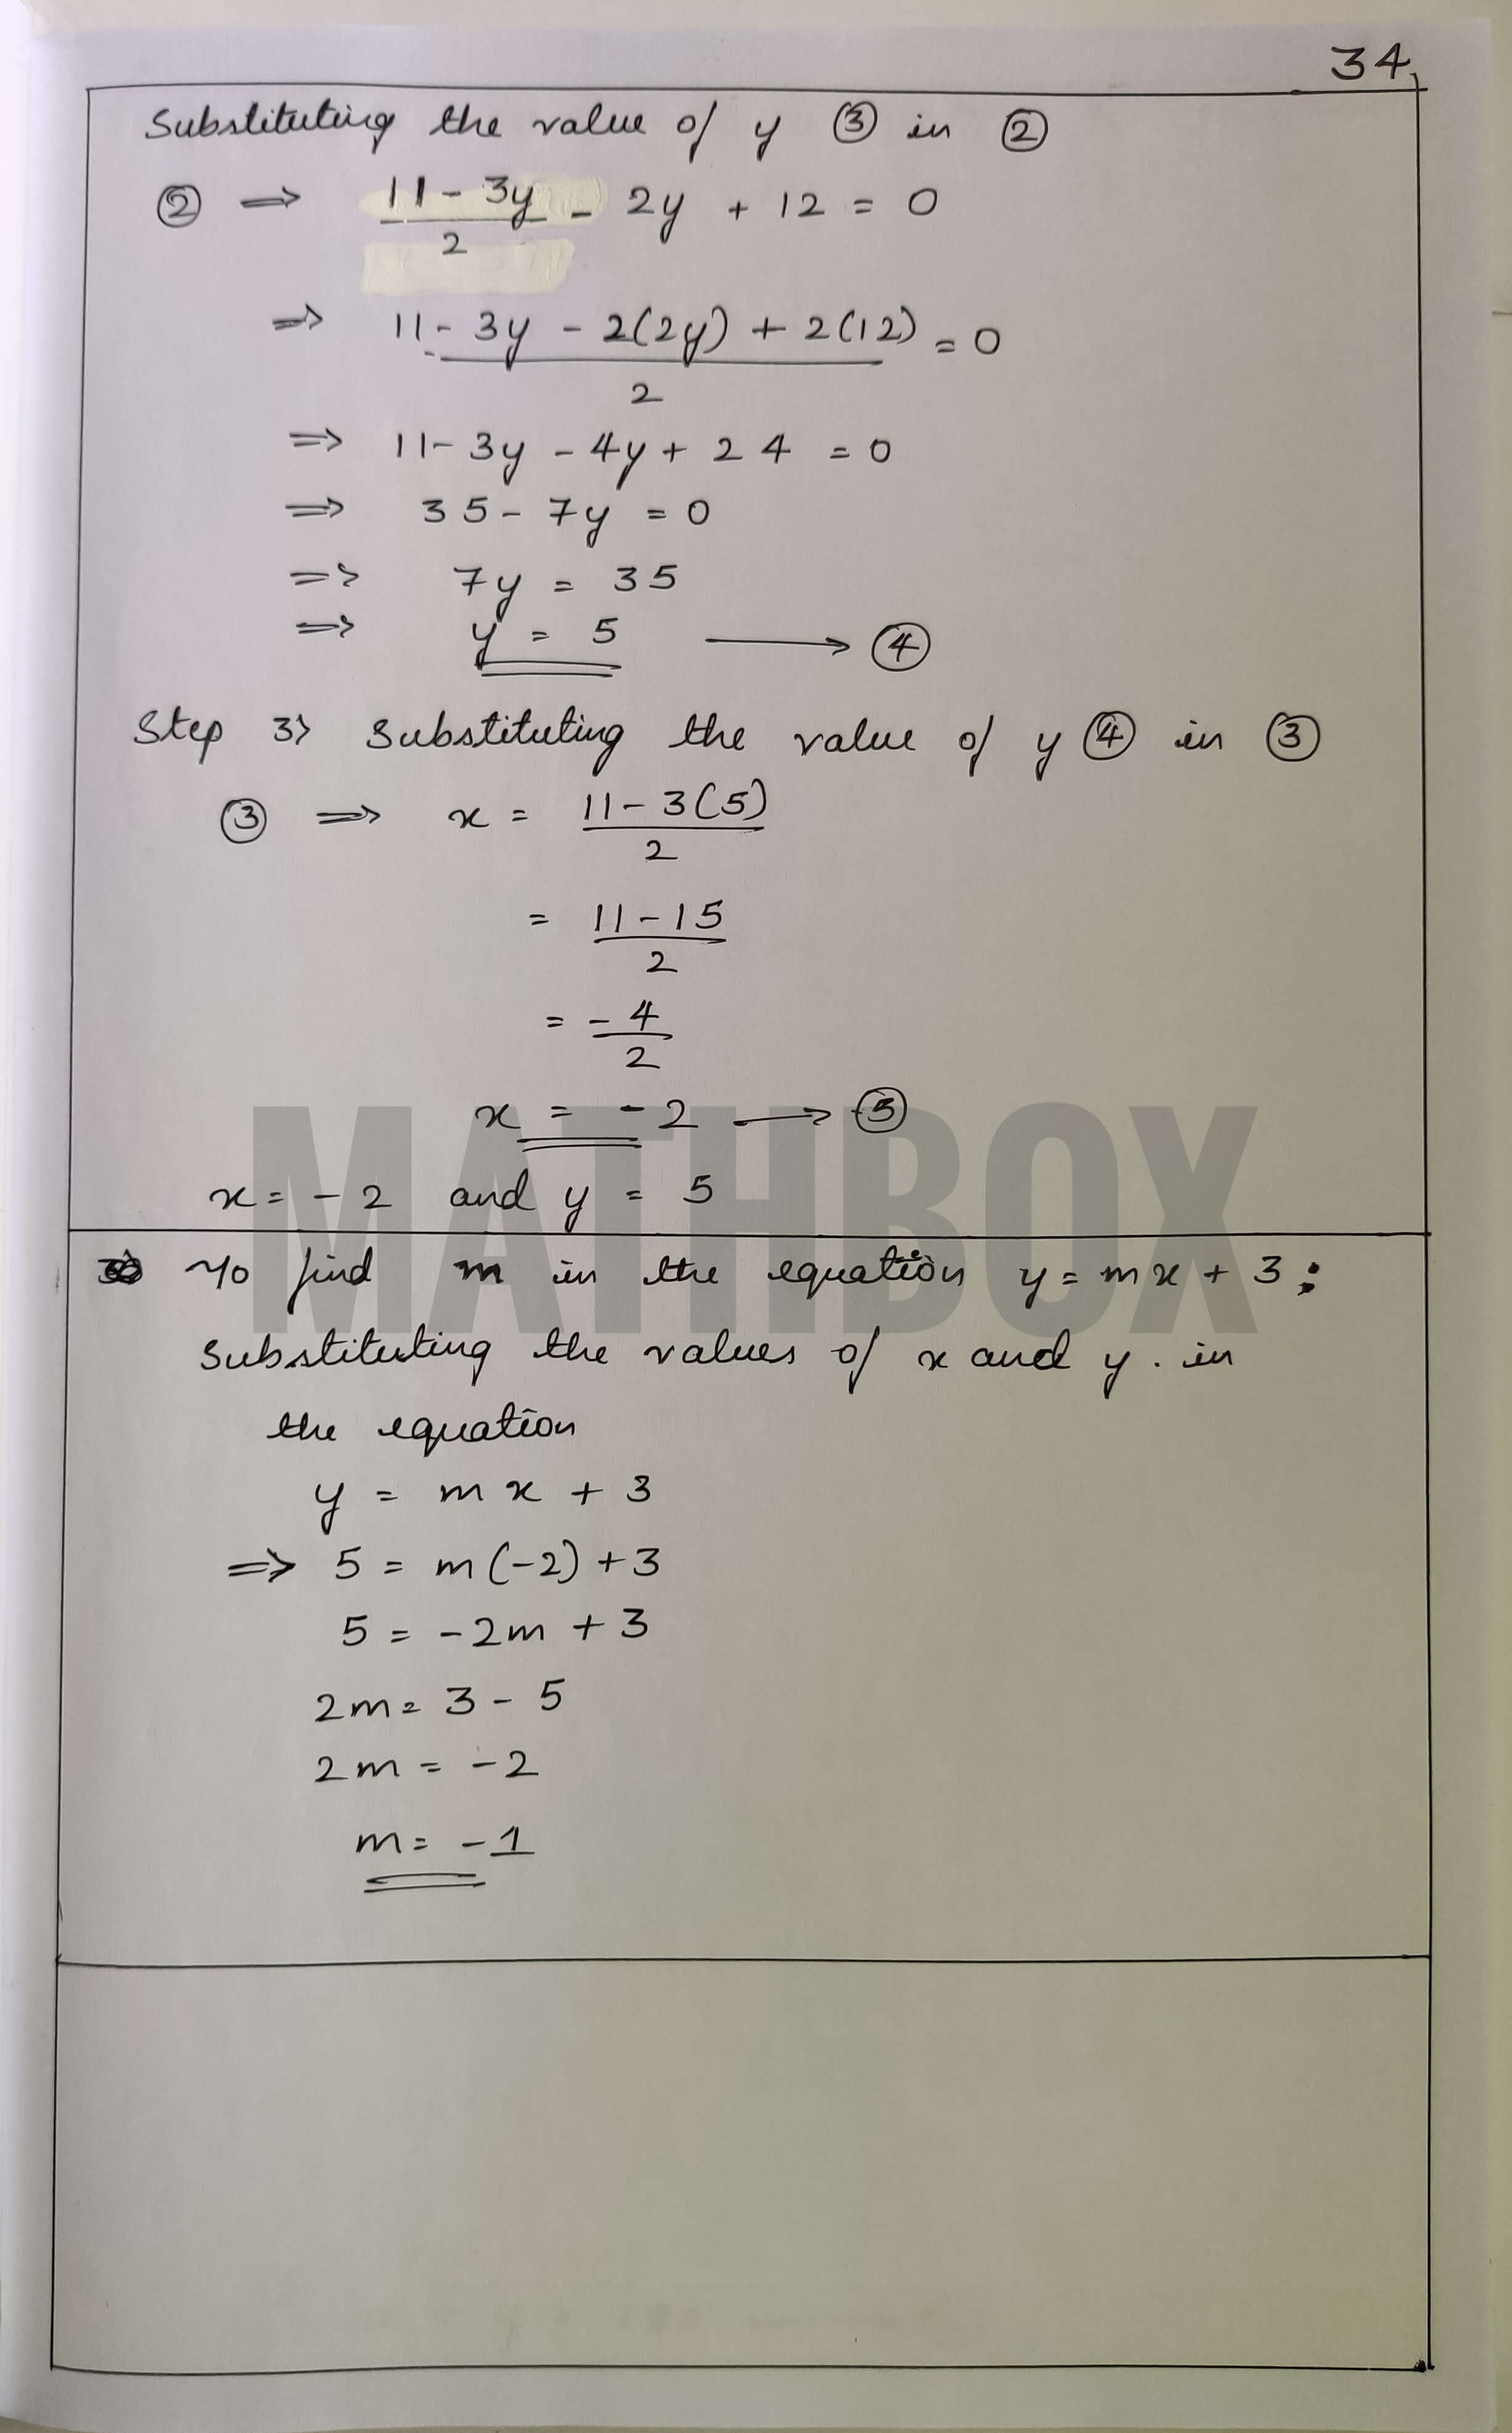 34
Substituting the value of y ③ in ②
② ⇒ (11 - 3y)/2 - 2y + 12 = 0
⇒ (11 - 3y - 2(2y) + 2(12))/2 = 0
⇒ 11 - 3y - 4y + 24 = 0
⇒ 35 - 7y = 0
⇒ 7y = 35
⇒ y = 5 ⟶ ④
Step 3) Substituting the value of y ④ in ③
③ ⇒ x = (11 - 3(5))/2
= (11 - 15)/2
= -4/2
x = -2 ⟶ ⑤
MATHBOX
x = -2 and y = 5
To find m in the equation y = mx + 3 :
Substituting the values of x and y . in
the equation
y = mx + 3
⇒ 5 = m(-2) + 3
5 = -2m + 3
2m = 3 - 5
2m = -2
m = -1